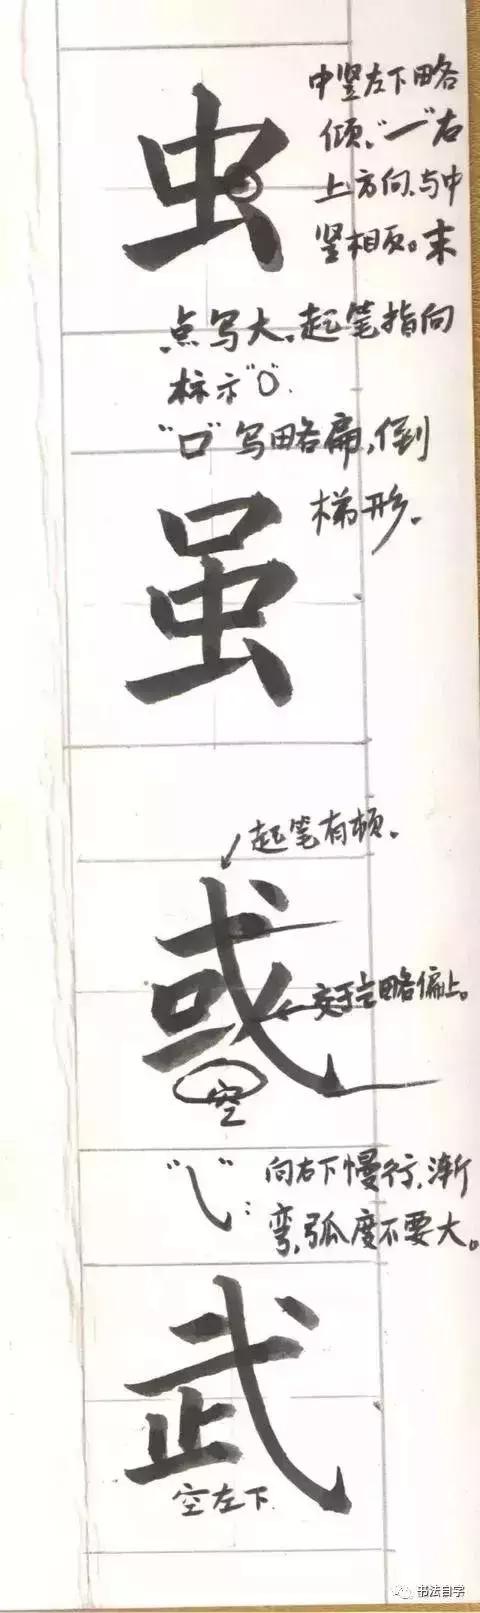 虫
中竖左下略
倾,“㇀”右
上方向,与中
竖相反。末
点写大,起笔指向
标示“0”.
“口”写略扁,倒
梯形。
虽
起笔有顿。
或
交于 略偏上。
空
“㇂”: 向右下慢行,渐
弯,弧度不要大。
武
空左下
书法自学